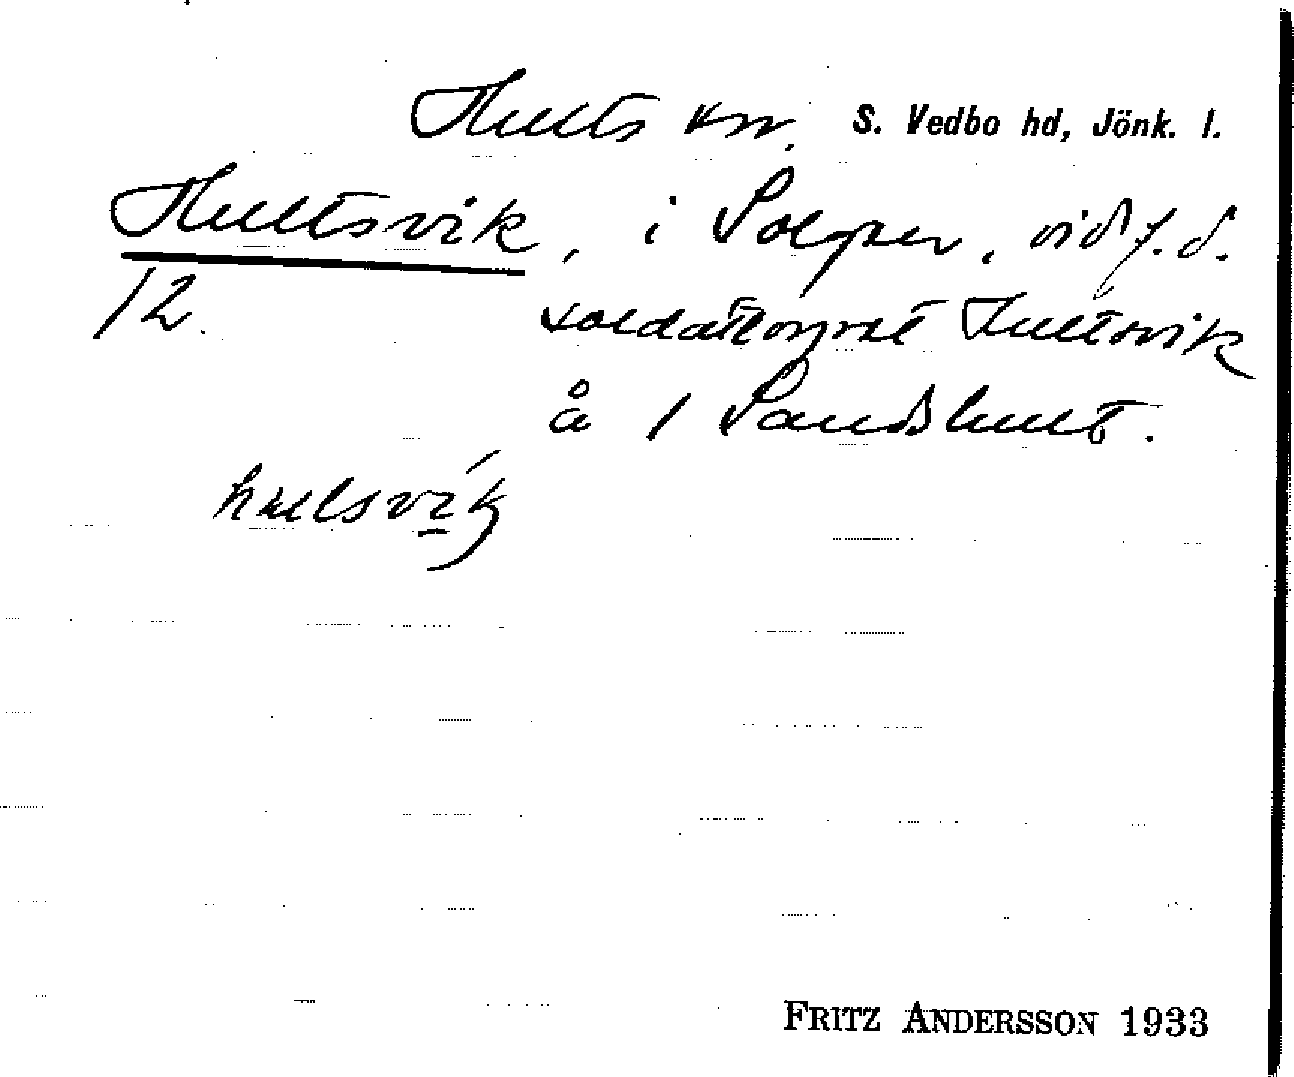 Hults sn. S. Vedbo hd, Jönk. l.
Hultsvik, i Solgen, vid f. d.
12. soldattorpet Hultsvik
å 1 Sandshult.
hulsvík
FRITZ ANDERSSON 1933